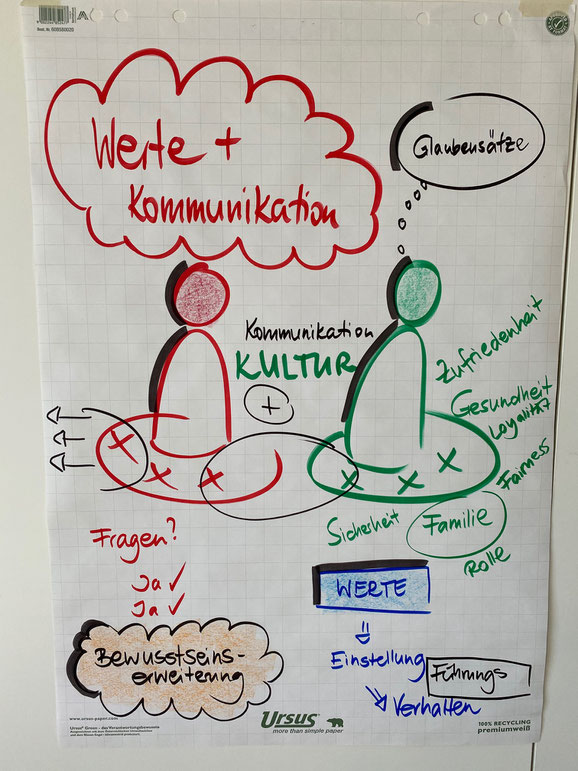 Werte +
Kommunikation
Glaubenssätze
Kommunikation
KULTUR
+
Zufriedenheit
Gesundheit
Loyalität
Fairness
Sicherheit
Familie
Rolle
Fragen?
Ja ✓
Ja ✓
WERTE
Bewusstseins-
erweiterung
Einstellung
Führungs
Verhalten
www.ursus-paper.com
Ursus®
more than simple paper
100% RECYCLING
premiumweiß